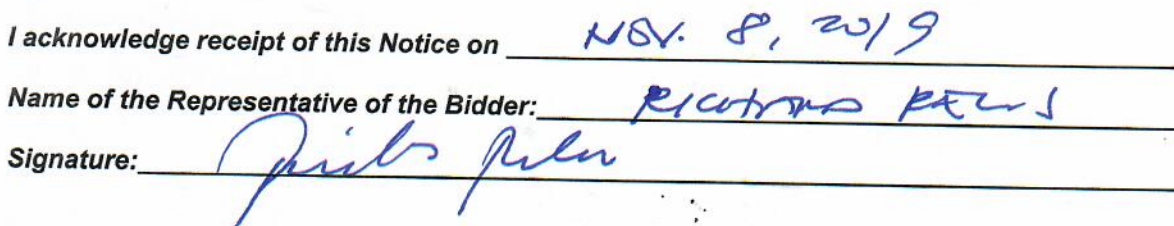 I acknowledge receipt of this Notice on NOV. 8, 2019
Name of the Representative of the Bidder: RICHARD
Signature: